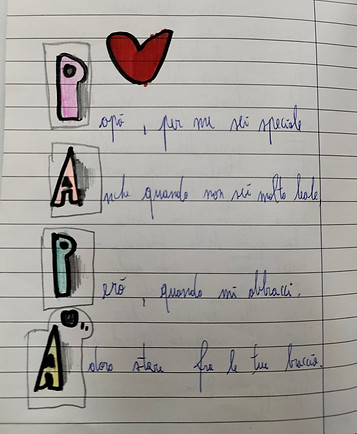 Papà, per me sei speciale
Anche quando non sei molto leale
Però, quando mi abbracci.
Adoro stare fra le tue braccia.